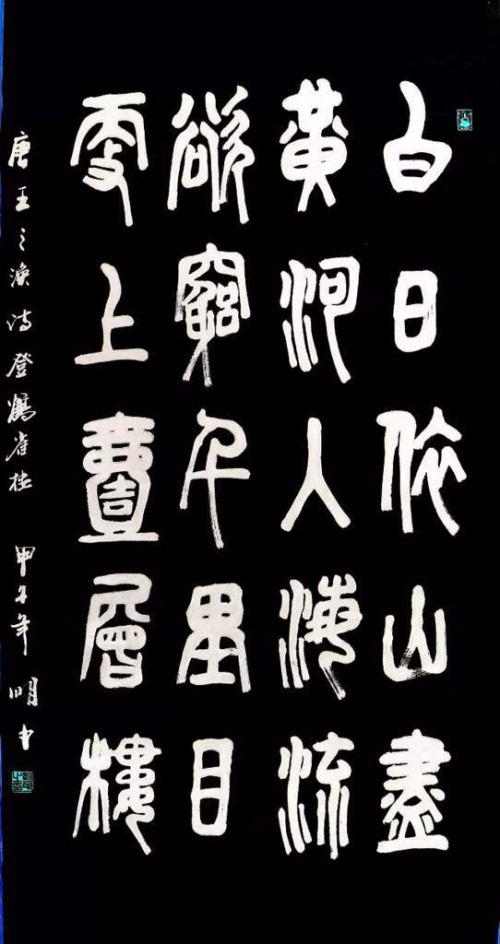 白日依山盡
黃河入海流
欲窮千里目
更上壹層樓
唐王之渙诗登鸛雀楼 甲午年 明中